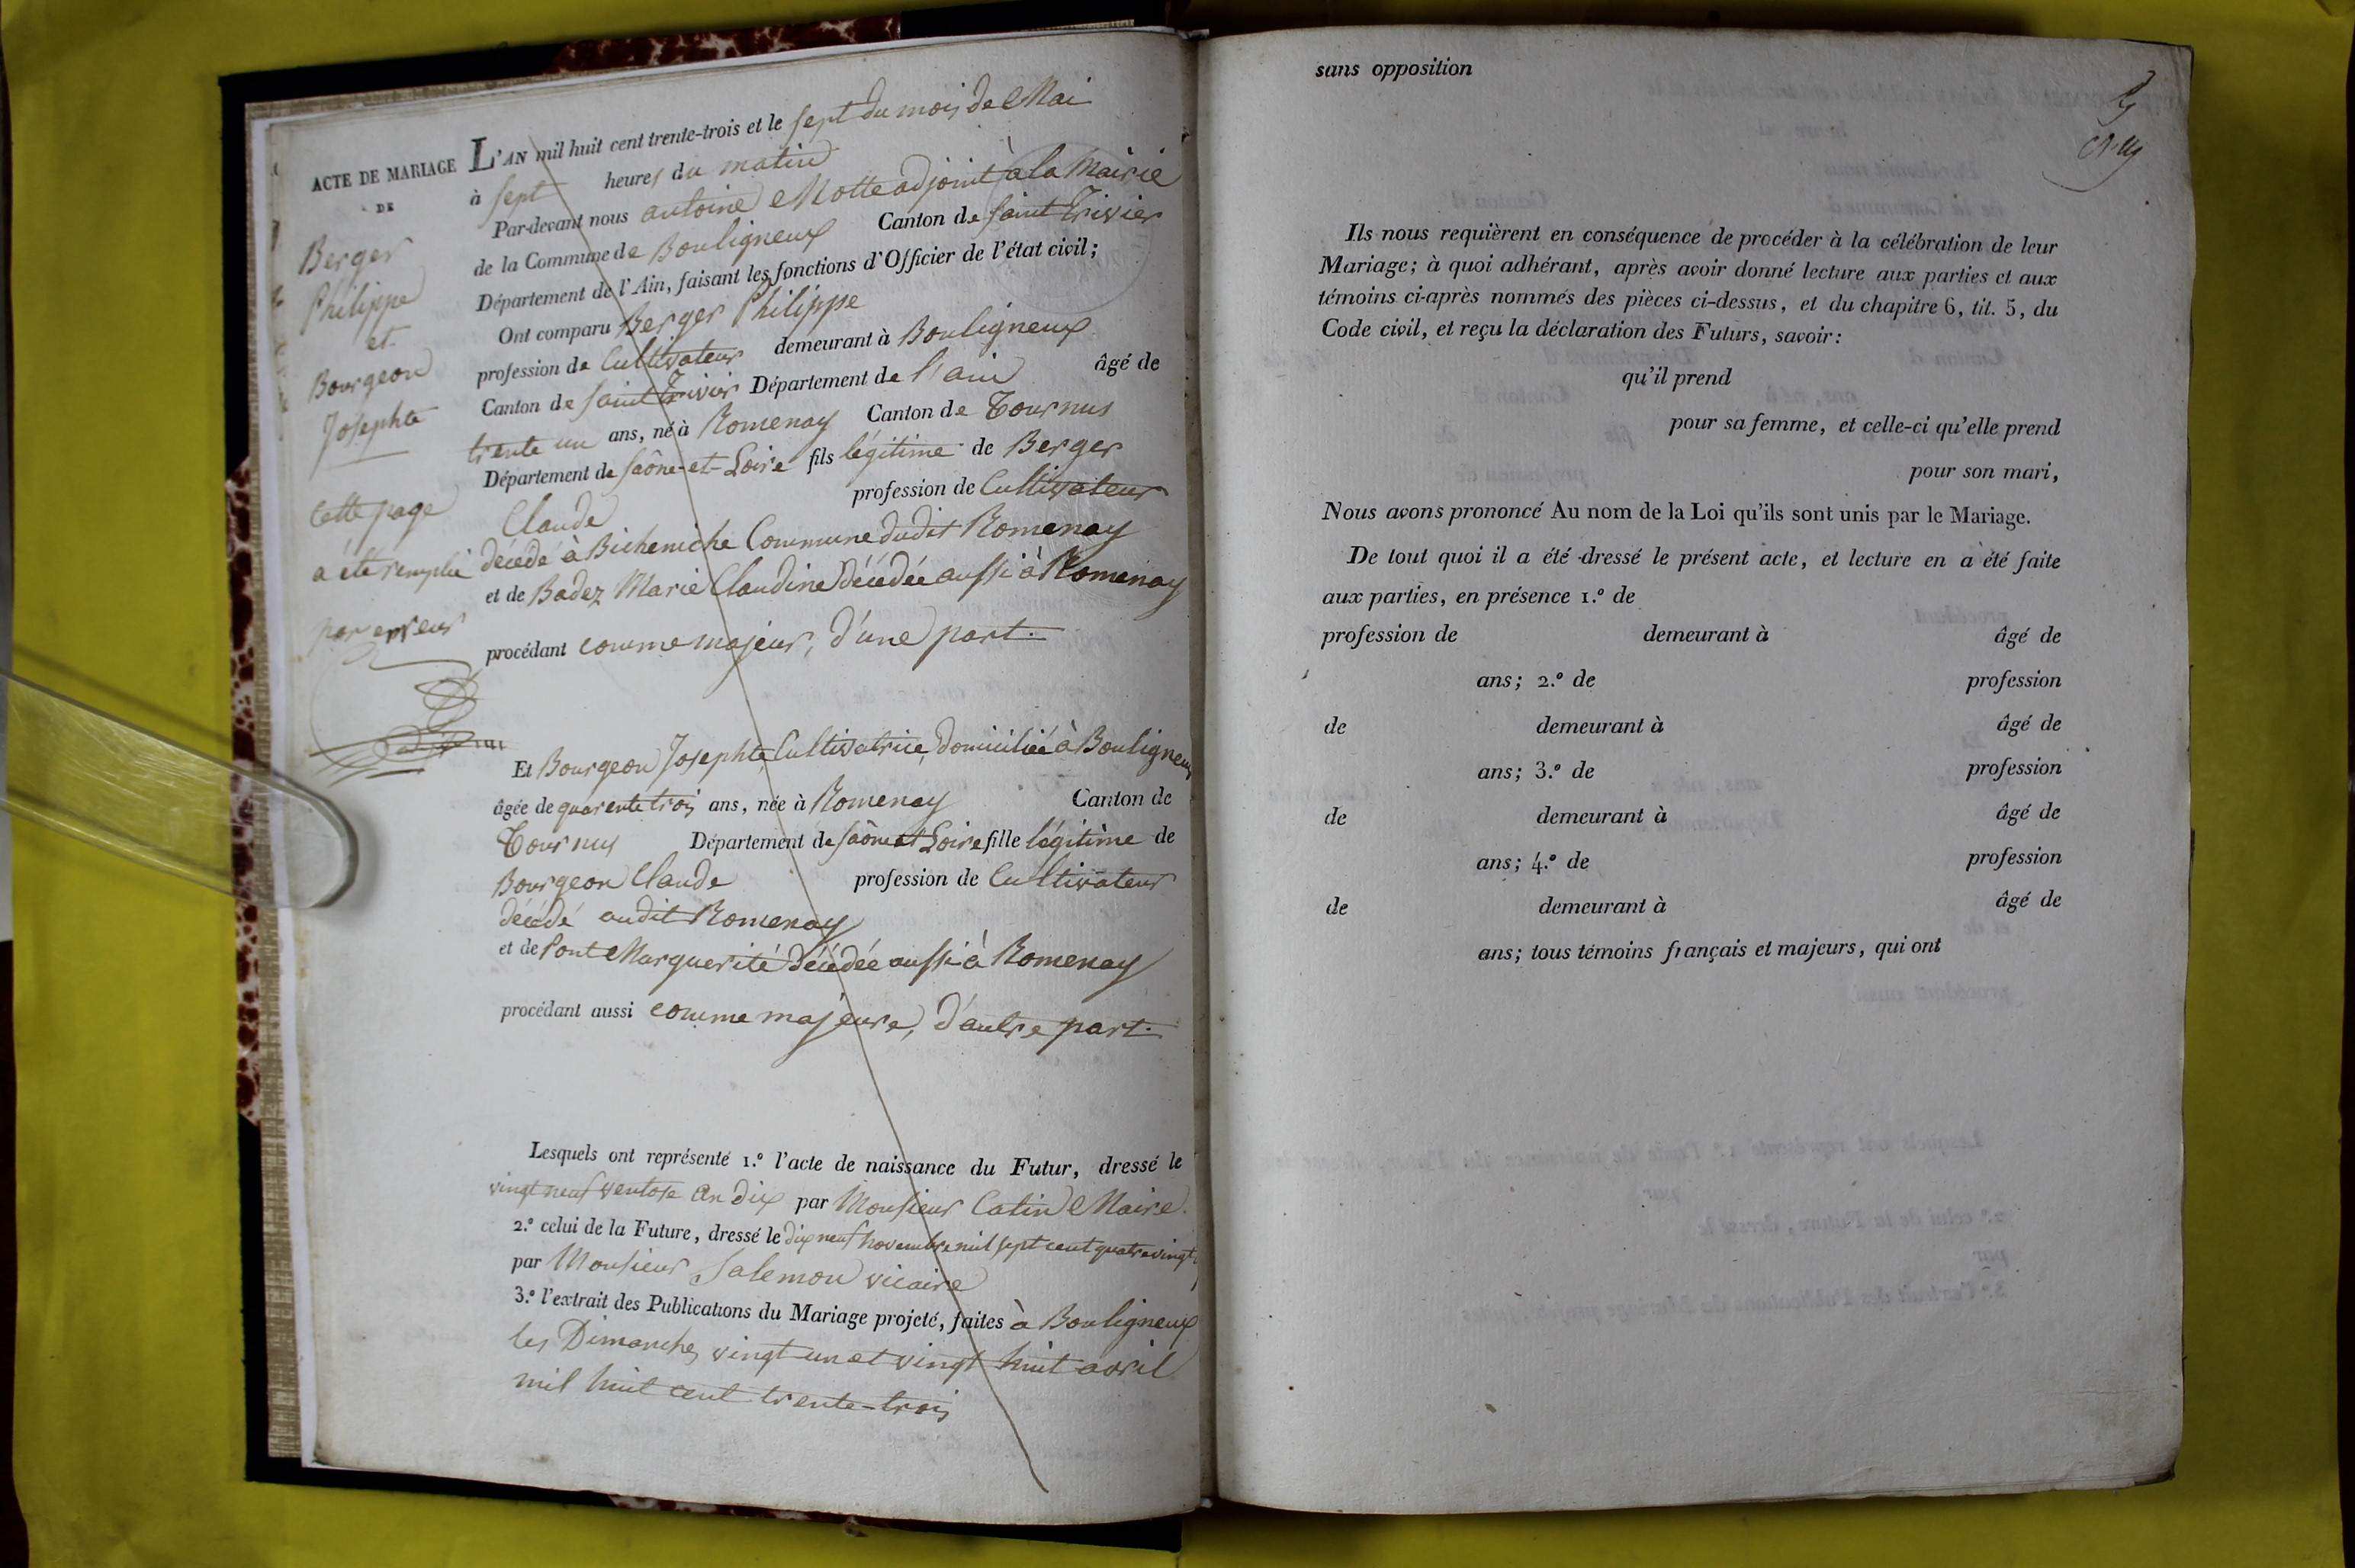 ACTE DE MARIAGE
DE
Berger
Philippe
et
Bourgeon
Josephte
Cette page
a été remplie
par erreur
L'AN mil huit cent trente-trois et le sept du mois de Mai
à sept heures du matin
Par-devant nous antoine Motte adjoint à la Mairie
de la Commune de Bouligneux Canton de saint Trivier
Département de l'Ain, faisant les fonctions d'Officier de l'état civil;
Ont comparu Berger Philippe
profession de Cultivateur demeurant à Bouligneux
Canton de saint Trivier Département de l'ain âgé de
trente un ans, né à Romenay Canton de Tournus
Département de Saône-et-Loire fils légitime de Berger
Claude profession de Cultivateur
décédé à Bicheniche Commune dudit Romenay
et de Badez Marie Claudine Décédée aussi à Romenay
procédant comme majeur, d'une part.
Et Bourgeon Josephte Cultivatrice, Domiciliée à Bouligneux
âgée de quarente trois ans, née à Romenay Canton de
Tournus Département de Saône et Loire fille légitime de
Bourgeon Claude profession de Cultivateur
décédé audit Romenay
et de Pont Marguerite Décédée aussi à Romenay
procédant aussi comme majeure, d'autre part.
Lesquels ont représenté 1.º l'acte de naissance du Futur, dressé le
vingt neuf ventose an dix par Monsieur Catin Maire.
2.º celui de la Future, dressé le dix neuf novembre mil sept cent quatrevingt
par Monsieur Salemon vicaire
3.º l'extrait des Publications du Mariage projeté, faites à Bouligneux
les Dimanches vingt un et vingt huit avril
mil huit cent trente-trois
sans opposition
Ils nous requièrent en conséquence de procéder à la célébration de leur
Mariage; à quoi adhérant, après avoir donné lecture aux parties et aux
témoins ci-après nommés des pièces ci-dessus, et du chapitre 6, tit. 5, du
Code civil, et reçu la déclaration des Futurs, savoir:
qu'il prend
pour sa femme, et celle-ci qu'elle prend
pour son mari,
Nous avons prononcé Au nom de la Loi qu'ils sont unis par le Mariage.
De tout quoi il a été dressé le présent acte, et lecture en a été faite
aux parties, en présence 1.º de
profession de demeurant à âgé de
ans; 2.º de profession
de demeurant à âgé de
ans; 3.º de profession
de demeurant à âgé de
ans; 4.º de profession
de demeurant à âgé de
ans; tous témoins français et majeurs, qui ont